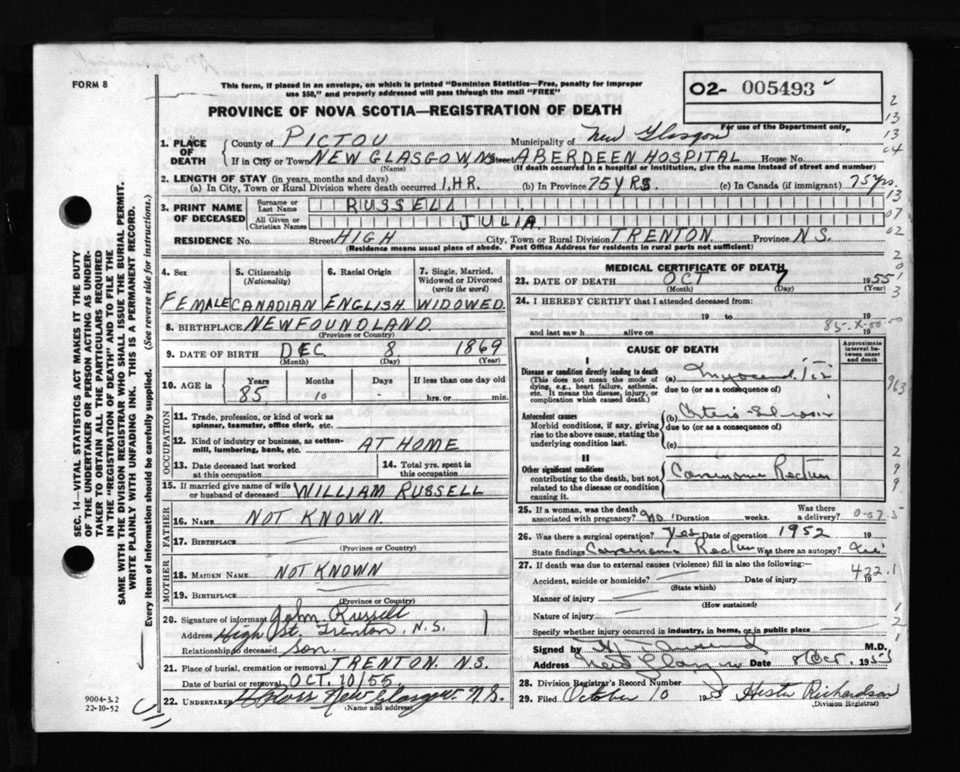 FORM 8
This form, if placed in an envelope, on which is printed "Dominion Statistics—Free, penalty for improper
use $50," and properly addressed will pass through the mail "FREE"
O2- 005493
For use of the Department only,
PROVINCE OF NOVA SCOTIA—REGISTRATION OF DEATH
1. PLACE OF DEATH
County of PICTOU Municipality of New Glasgow
If in City or Town NEW GLASGOW, N.S. Street ABERDEEN HOSPITAL House No.
(Name) (If death occurred in a hospital or institution, give the name instead of street and number)
2. LENGTH OF STAY (in years, months and days)
(a) In City, Town or Rural Division where death occurred 1. HR. (b) In Province 75 YRS. (c) In Canada (if immigrant) 75 yrs.
3. PRINT NAME OF DECEASED
Surname or Last Name RUSSELL
All Given or Christian Names JULIA
RESIDENCE No. Street HIGH City, Town or Rural Division TRENTON. Province N.S.
(Residence means usual place of abode. Post Office Address for residents in rural parts not sufficient)
4. Sex FEMALE
5. Citizenship (Nationality) CANADIAN
6. Racial Origin ENGLISH
7. Single, Married, Widowed or Divorced (write the word) WIDOWED.
8. BIRTHPLACE NEWFOUNDLAND.
(Province or Country)
9. DATE OF BIRTH DEC 8 1869
(Month) (Day) (Year)
10. AGE in Years Months Days If less than one day old
85 10 - hrs. or min.
OCCUPATION
11. Trade, profession, or kind of work as
spinner, teamster, office clerk, etc.
12. Kind of industry or business, as cotton-
mill, lumbering, bank, etc. AT HOME
13. Date deceased last worked
at this occupation
14. Total yrs. spent in
this occupation
15. If married give name of wife
or husband of deceased WILLIAM RUSSELL
FATHER
16. NAME NOT KNOWN.
17. BIRTHPLACE
(Province or Country)
MOTHER
18. MAIDEN NAME NOT KNOWN
19. BIRTHPLACE
(Province or Country)
20. Signature of informant John Russell
Address High St. Trenton, N.S.
Relationship to deceased son.
21. Place of burial, cremation or removal TRENTON. N.S.
Date of burial or removal OCT. 10/55.
22. New Glasgow N.S.
(Name and address)
MEDICAL CERTIFICATE OF DEATH
23. DATE OF DEATH OCT 7 1955
(Month) (Day) (Year)
24. I HEREBY CERTIFY that I attended deceased from:
19 to 19
and last saw h alive on 19
CAUSE OF DEATH
Approximate interval between onset and death
I
Disease or condition directly leading to death
(This does not mean the mode of dying, e.g., heart failure, asthenia, etc. It means the disease, injury, or complication which caused death.)
(a)
due to (or as a consequence of)
Antecedent causes
Morbid conditions, if any, giving rise to the above cause, stating the underlying condition last.
(b)
due to (or as a consequence of)
(c)
II
Other significant conditions
contributing to the death, but not related to the disease or condition causing it.
Carcinoma Rectum
25. If a woman, was the death associated with pregnancy? no Duration weeks. Was there a delivery?
26. Was there a surgical operation? Yes Date of operation 1952 19
State findings Carcinoma Rectum Was there an autopsy?
27. If death was due to external causes (violence) fill in also the following:
Accident, suicide or homicide? Date of injury 19
(State which)
Manner of injury
(How sustained)
Nature of injury
Specify whether injury occurred in industry, in home, or in public place
422.1
Signed by M.D.
Address New Glasgow Date 8 Oct. 1955
28. Division Registrar's Record Number
29. Filed October 10 1955 Hester Richardson
(Division Registrar)
SEC. 14—VITAL STATISTICS ACT MAKES IT THE DUTY
OF THE UNDERTAKER OR PERSON ACTING AS UNDER-
TAKER TO OBTAIN ALL THE PARTICULARS REQUIRED
IN THE "REGISTRATION OF DEATH" AND TO FILE THE
SAME WITH THE DIVISION REGISTRAR WHO SHALL ISSUE THE BURIAL PERMIT.
WRITE PLAINLY WITH UNFADING INK. THIS IS A PERMANENT RECORD.
Every item of information should be carefully supplied. (See reverse side for instructions).
9004-3.2
22-10-52